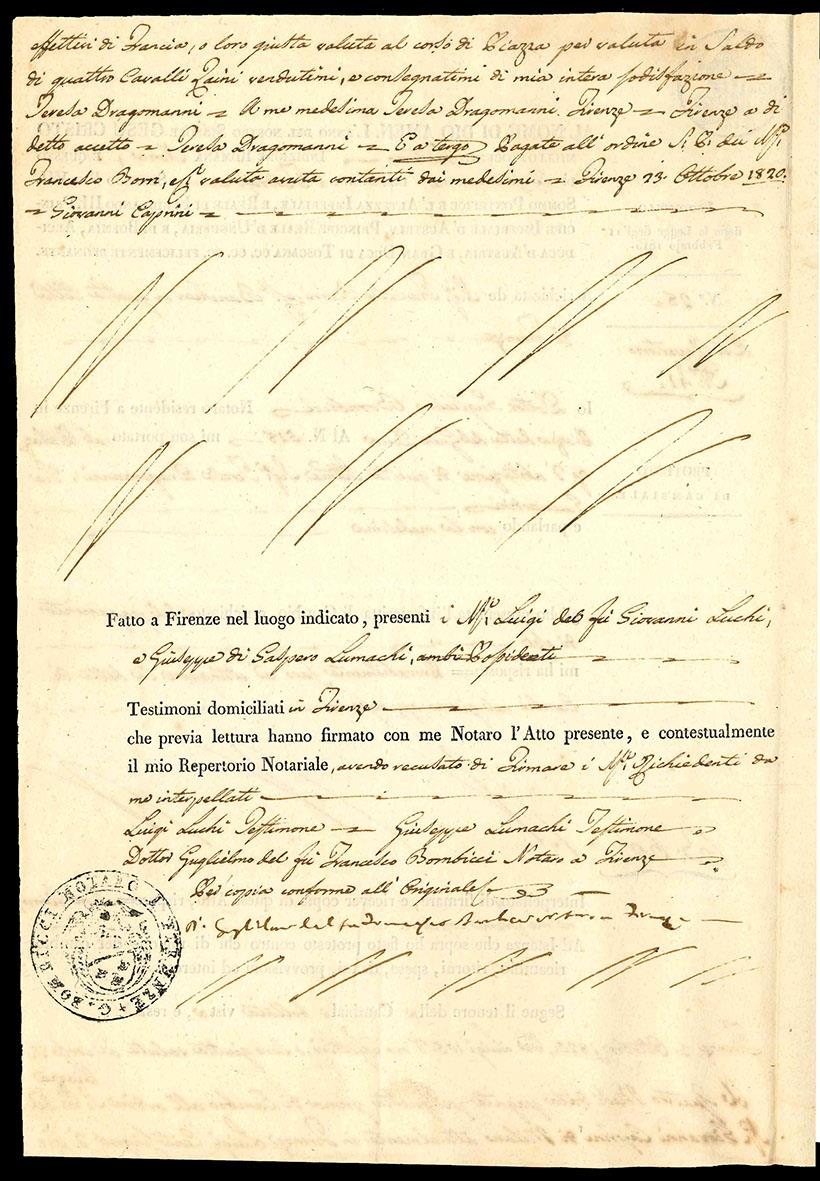 effettivi di Francia, o loro giusta valuta al corso di Piazza per valuta in Saldo
di quattro Cavalli Zaini vendutimi, e consegnatimi di mia intera sodisfazione =
Teresa Dragomanni = A me medesima Teresa Dragomanni Firenze = Firenze a di
detto accetto = Teresa Dragomanni = E a tergo Pagate all' ordine S. P. dei
Francesco Borri, valuta avuta contanti dai medesimi = Firenze 23. Ottobre 1820.
= Giovanni Caprini =
Fatto a Firenze nel luogo indicato, presenti i Luigi del fù Giovanni Luchi,
e Giuseppe di Gaspero Lumachi, ambi Possidenti
Testimoni domiciliati in Firenze
che previa lettura hanno firmato con me Notaro l'Atto presente, e contestualmente
il mio Repertorio Notariale, avendo recusato di Firmare i Richiedenti da
me interpellati
Luigi Luchi Testimone = Giuseppe Lumachi Testimone
Dottor Guglielmo del fù Francesco Bombicci Notaro a Firenze
Per copia conforme all' Originale
G. BOMBICCI NOTARO A FIRENZE